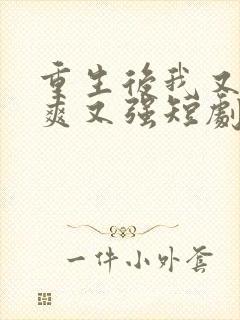 重生後我又
爽又強短劇
一件小外套